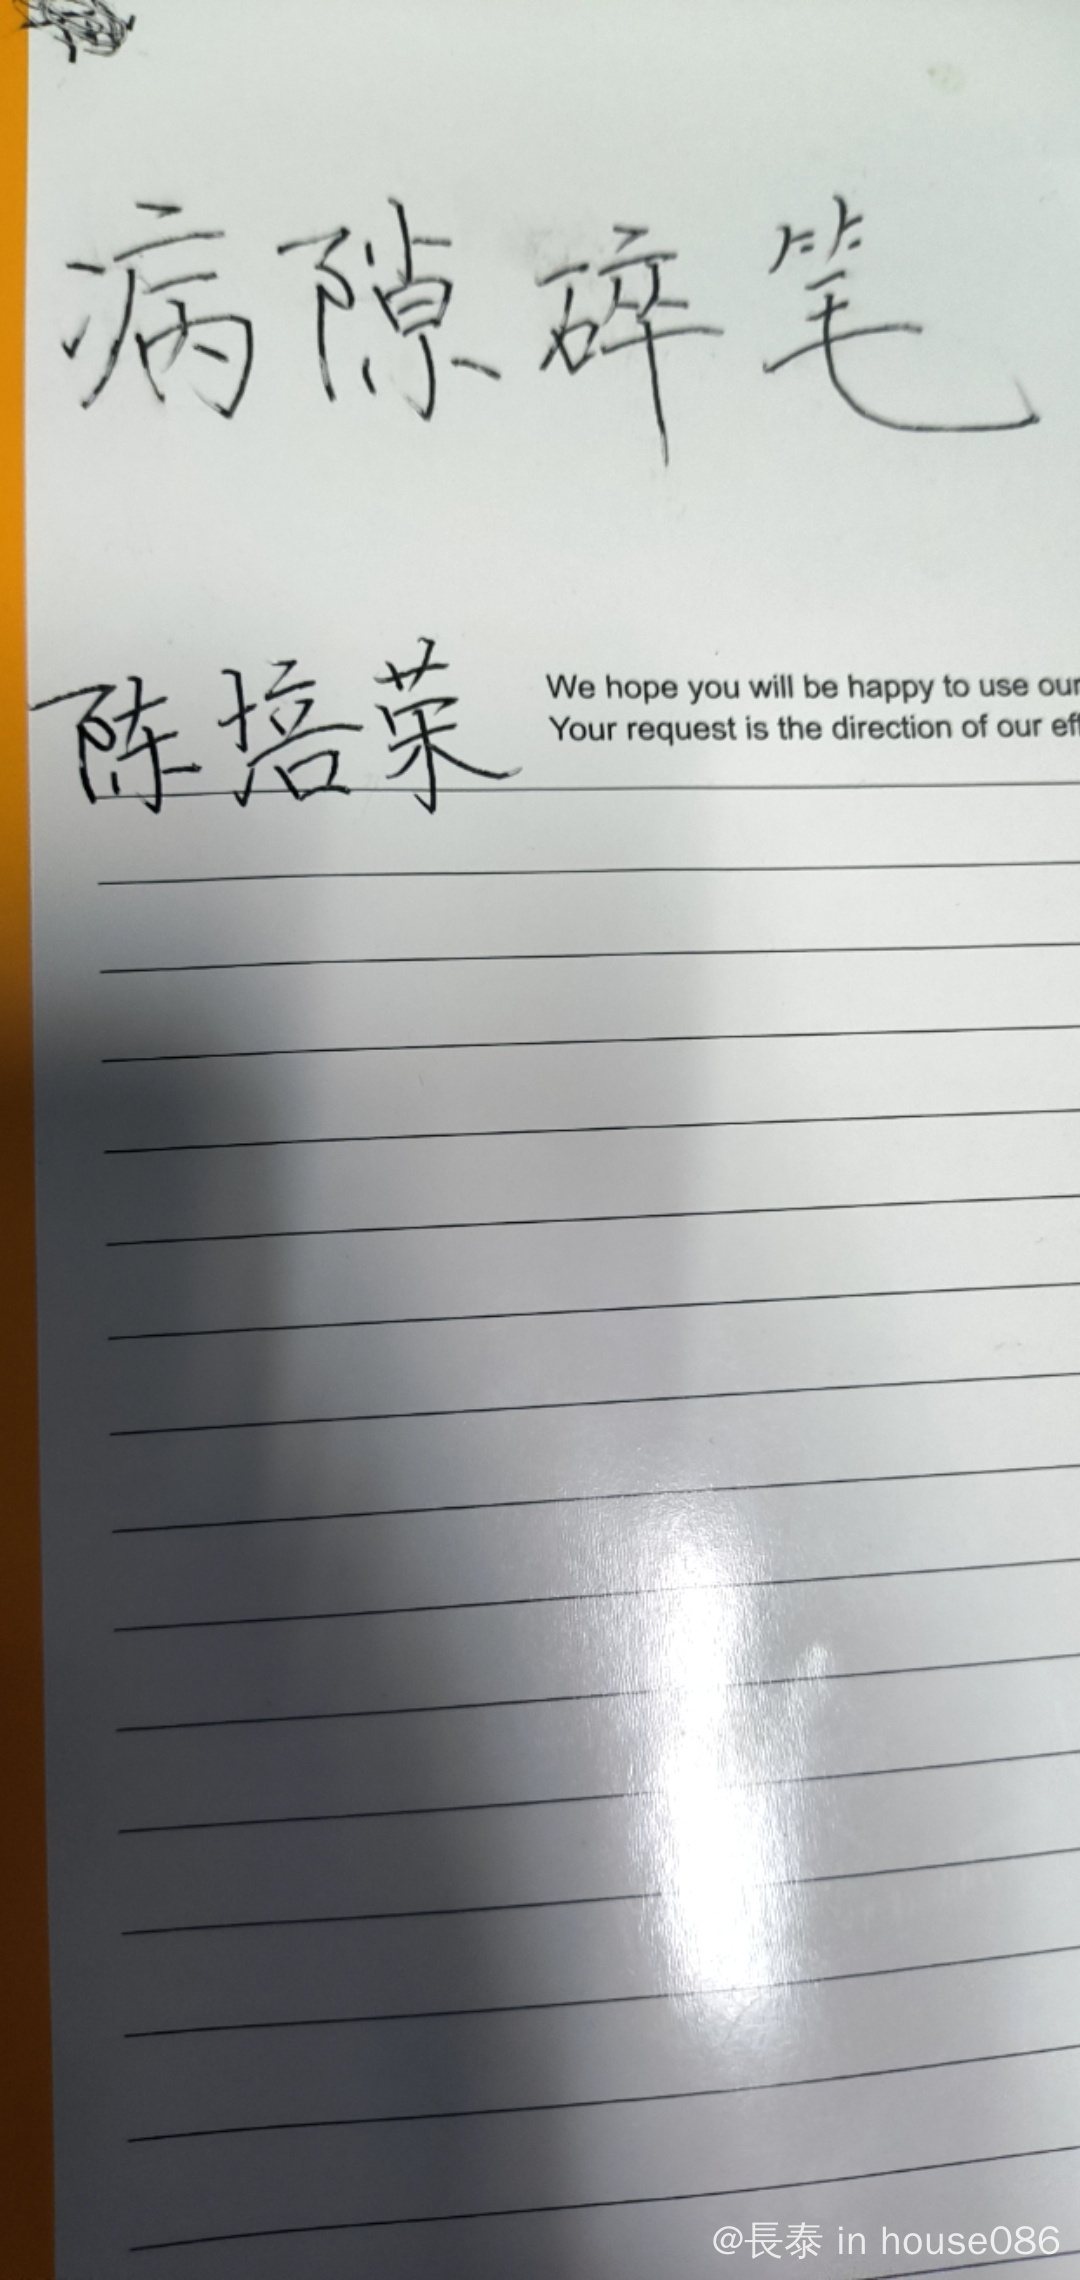 病隙碎笔
陈培荣
We hope you will be happy to use our
Your request is the direction of our eff
@長泰 in house086